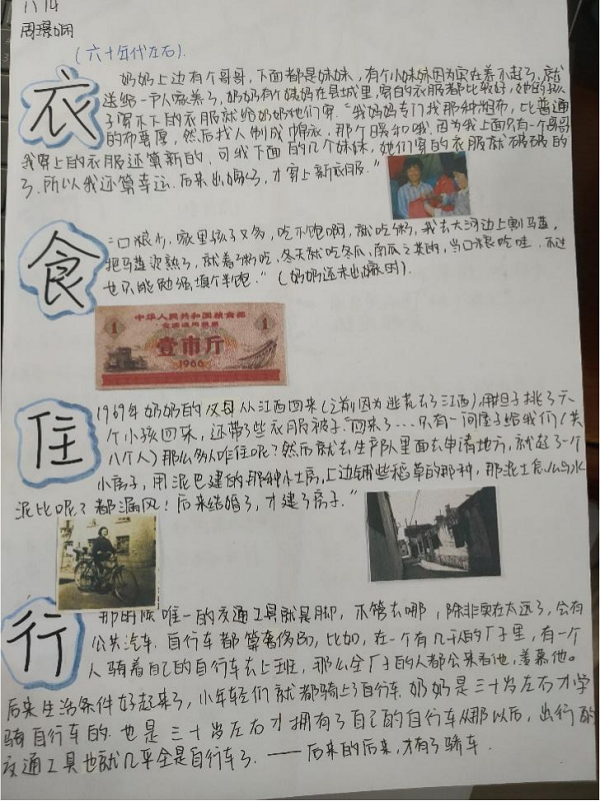 1114
周璟娴
（六十年代左右）
衣
奶奶上边有个哥哥，下面都是妹妹，有个小妹妹因为实在养不起了，就
送给一户人家养了，奶奶有个姨妈在县城里，穿的衣服都比较好，她的孩
子穿不下的衣服就给奶奶她们穿。“我妈妈专门找那种粗布，比普通
的布要厚，然后找人制成棉衣，那个暖和哦，因为我上面只有一个哥哥
我穿上的衣服还算新的，可我下面的几个妹妹，她们穿的衣服就破破的
了，所以我还算幸运。后来出嫁了，才穿上新衣服。”
食
“口粮少，家里孩子又多，吃不饱啊，就吃粥，我去大河边上割马菜，
把马菜烫熟了，就着粥吃，冬天就吃冬瓜、南瓜之类的，当口粮吃哇，不过
也只能勉强填个半饱。”（奶奶还未出嫁时）
中华人民共和国粮食部
全国通用粮票
1 1
壹市斤
1966
住
1969年奶奶的父母从江西回来（之前因为逃荒去了江西），用担子挑了六
个小孩回来，还带了些衣服被子。“回来了...只有一间屋子给我们（共
八个人）那么多人咋住呢？然而就去生产队里面去申请地方，就起了一个
小房子，用泥巴建的那种小土房，上边铺些稻草的那种，那泥土怎么与水
泥比呢？都漏风！后来结婚了，才建了房子。”
行
那时候唯一的交通工具就是脚，不管去哪，除非实在太远了，会有
公共汽车。自行车都算奢侈的，比如，在一个有几千人的厂子里，有一个
人骑着自己的自行车去上班，那么全厂子的人都会来看他，羡慕他。
后来生活条件好起来了，小年轻们就都骑上了自行车。奶奶是三十岁左右才学
骑自行车的，也是三十岁左右才拥有了自己的自行车从那以后，出行的
交通工具也就几乎全是自行车了。——后来的后来，才有了轿车.